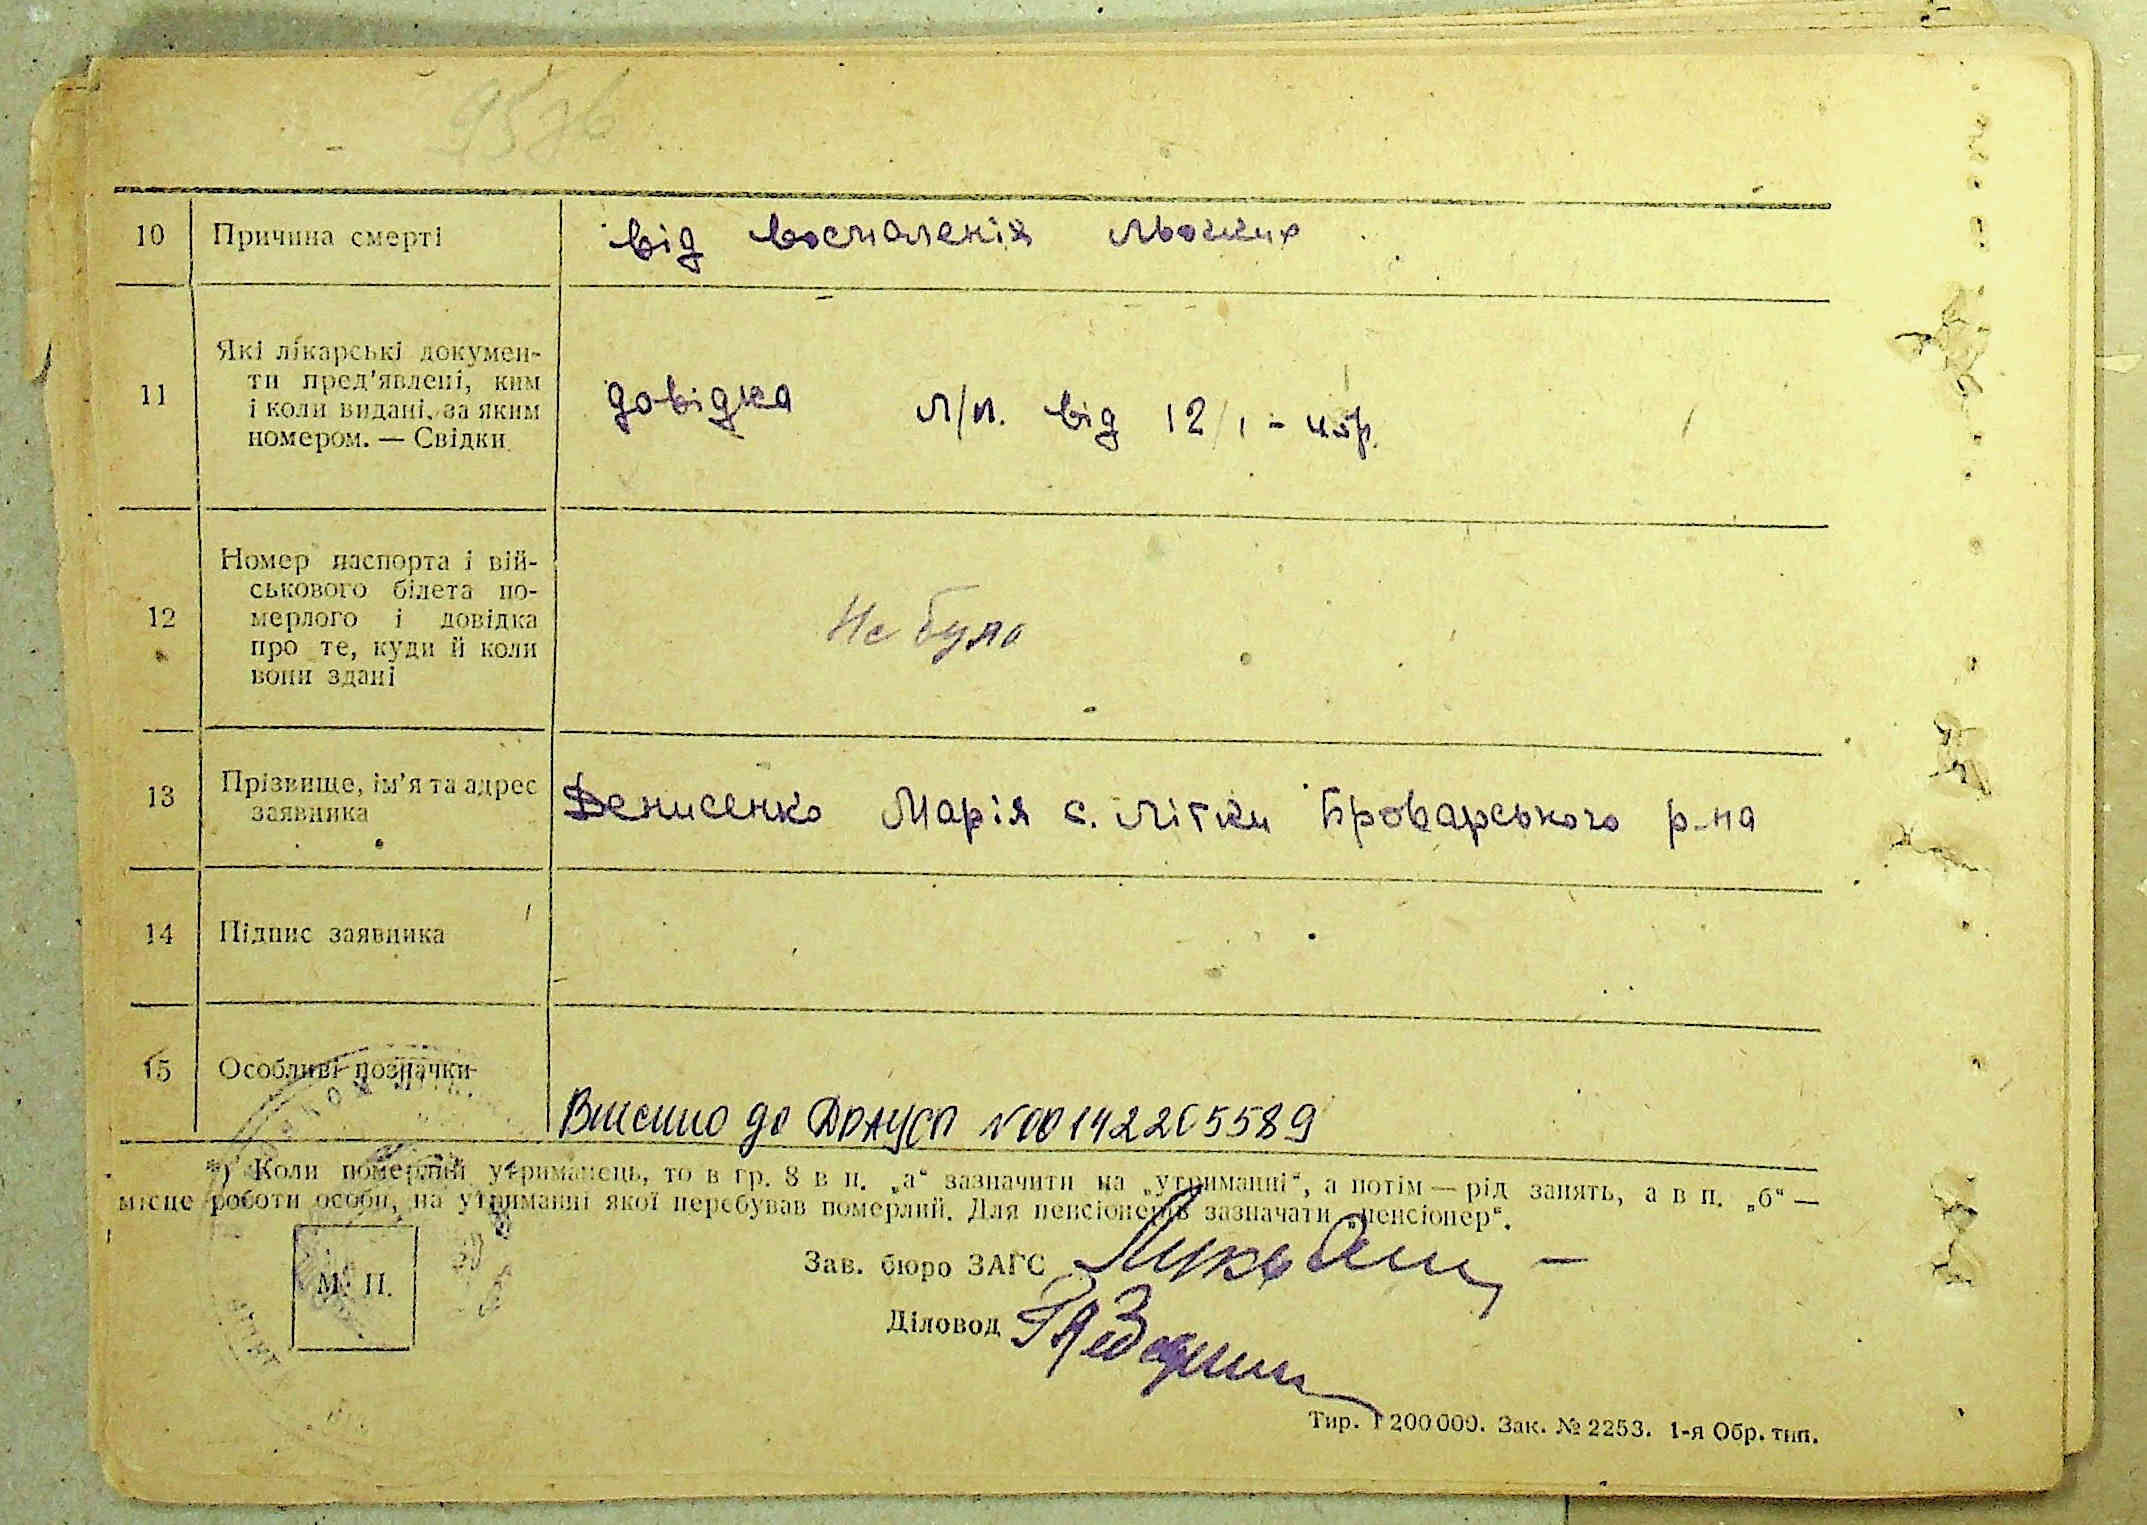 10 Причина смерті від воспаленія льоких
11 Які лікарські докумен-
ти пред'явлені, ким
і коли видані, за яким
номером. — Свідки
довідка л/п. від 12/1 - 45р.
12 Номер паспорта і вій-
ськового білета по-
мерлого і довідка
про те, куди й коли
вони здані
Не було
13 Прізвище, ім'я та адрес
заявника
Денисенко Марія с. Літки Броварського р-на
14 Підпис заявника
15 Особливі позначки
Внесено до ДРАЦСГ №00142205589
*) Коли померлий утриманець, то в гр. 8 в п. „а“ зазначити на „утриманні“, а потім — рід занять, а в п. „б“ —
місце роботи особи, на утриманні якої перебував померлий. Для пенсіонерів зазначати „пенсіонер“.
Зав. бюро ЗАГС
М. П.
Діловод
Тир. 1 200 000. Зак. № 2253. 1-я Обр. тип.